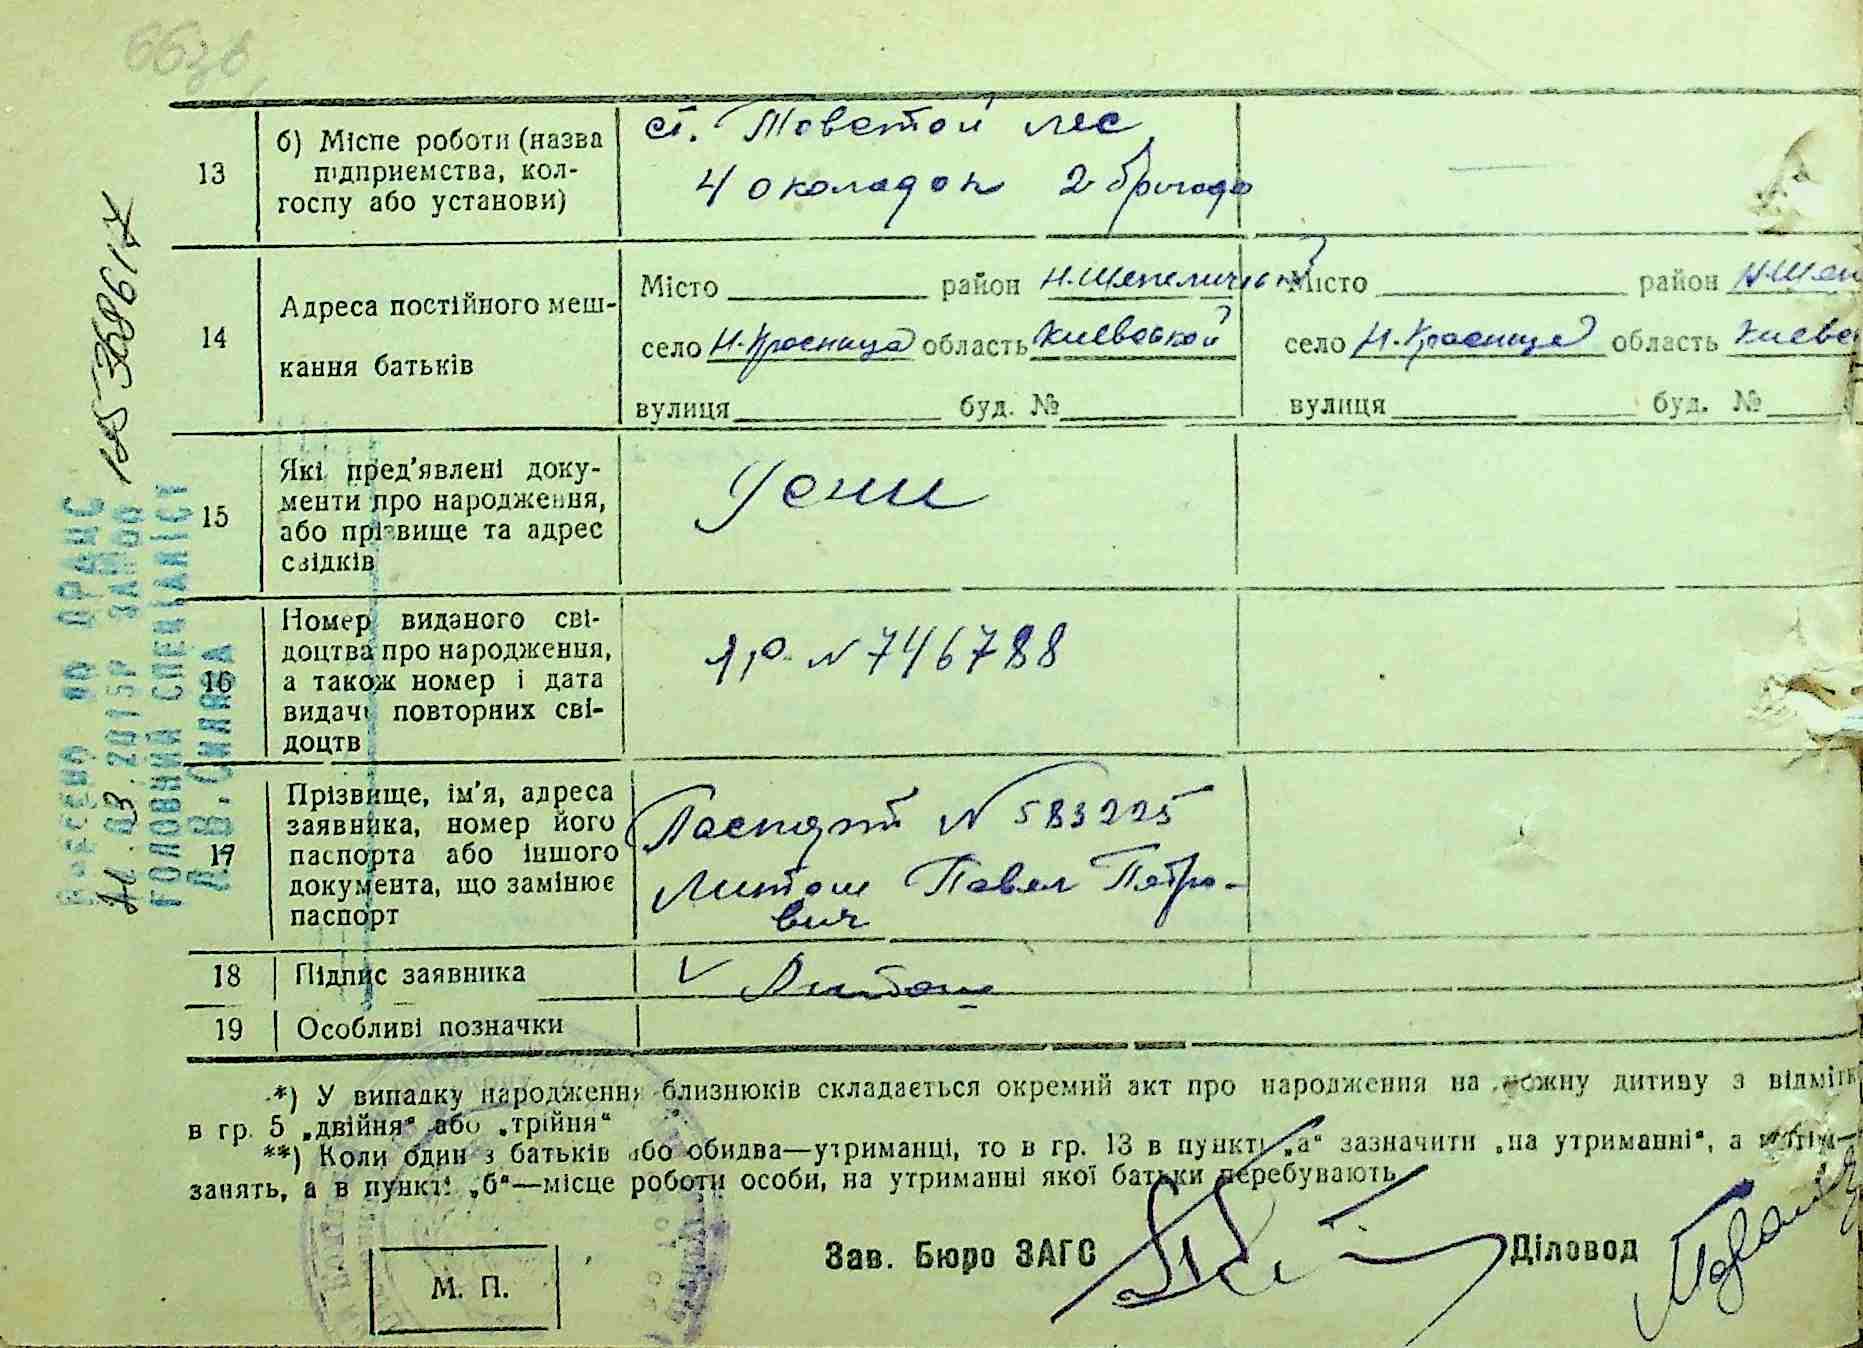 66зв.
13
б) Місце роботи (назва
підприємства, кол-
госпу або установи)
ст. Товстой лес
4 околадок 2 бригада
14
Адреса постійного меш-
кання батьків
Місто район Н.Шепеличський
село Н.Красница область Киевской
вулиця буд. №
Місто район Н.Шеп
село Н.Красница область Киево
вулиця буд. №
15
Які пред'явлені доку-
менти про народження,
або прізвище та адрес
свідків
Усни
16
Номер виданого сві-
доцтва про народження,
а також номер і дата
видачі повторних сві-
доцтв
N 746788
17
Прізвище, ім'я, адреса
заявника, номер його
паспорта або іншого
документа, що замінює
паспорт
Паспорт N 583225
Литош Павел Петро-
вич
18
Підпис заявника
V Литош
19
Особливі позначки
*) У випадку народження близнюків складається окремий акт про народження на кожну дитину з відмітк
в гр. 5 „двійня“ або „трійня“
**) Коли один з батьків або обидва—утриманці, то в гр. 13 в пункті „а“ зазначити „на утриманні“, а
занять, а в пункті „б“—місце роботи особи, на утриманні якої батьки перебувають
Зав. Бюро ЗАГС
Діловод
М. П.
внесено до ДРАЦС
03.2015р за №00
ГОЛОВНИЙ СПЕЦІАЛІСТ